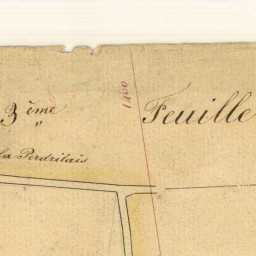 3ème Feuille
La Perdrilais